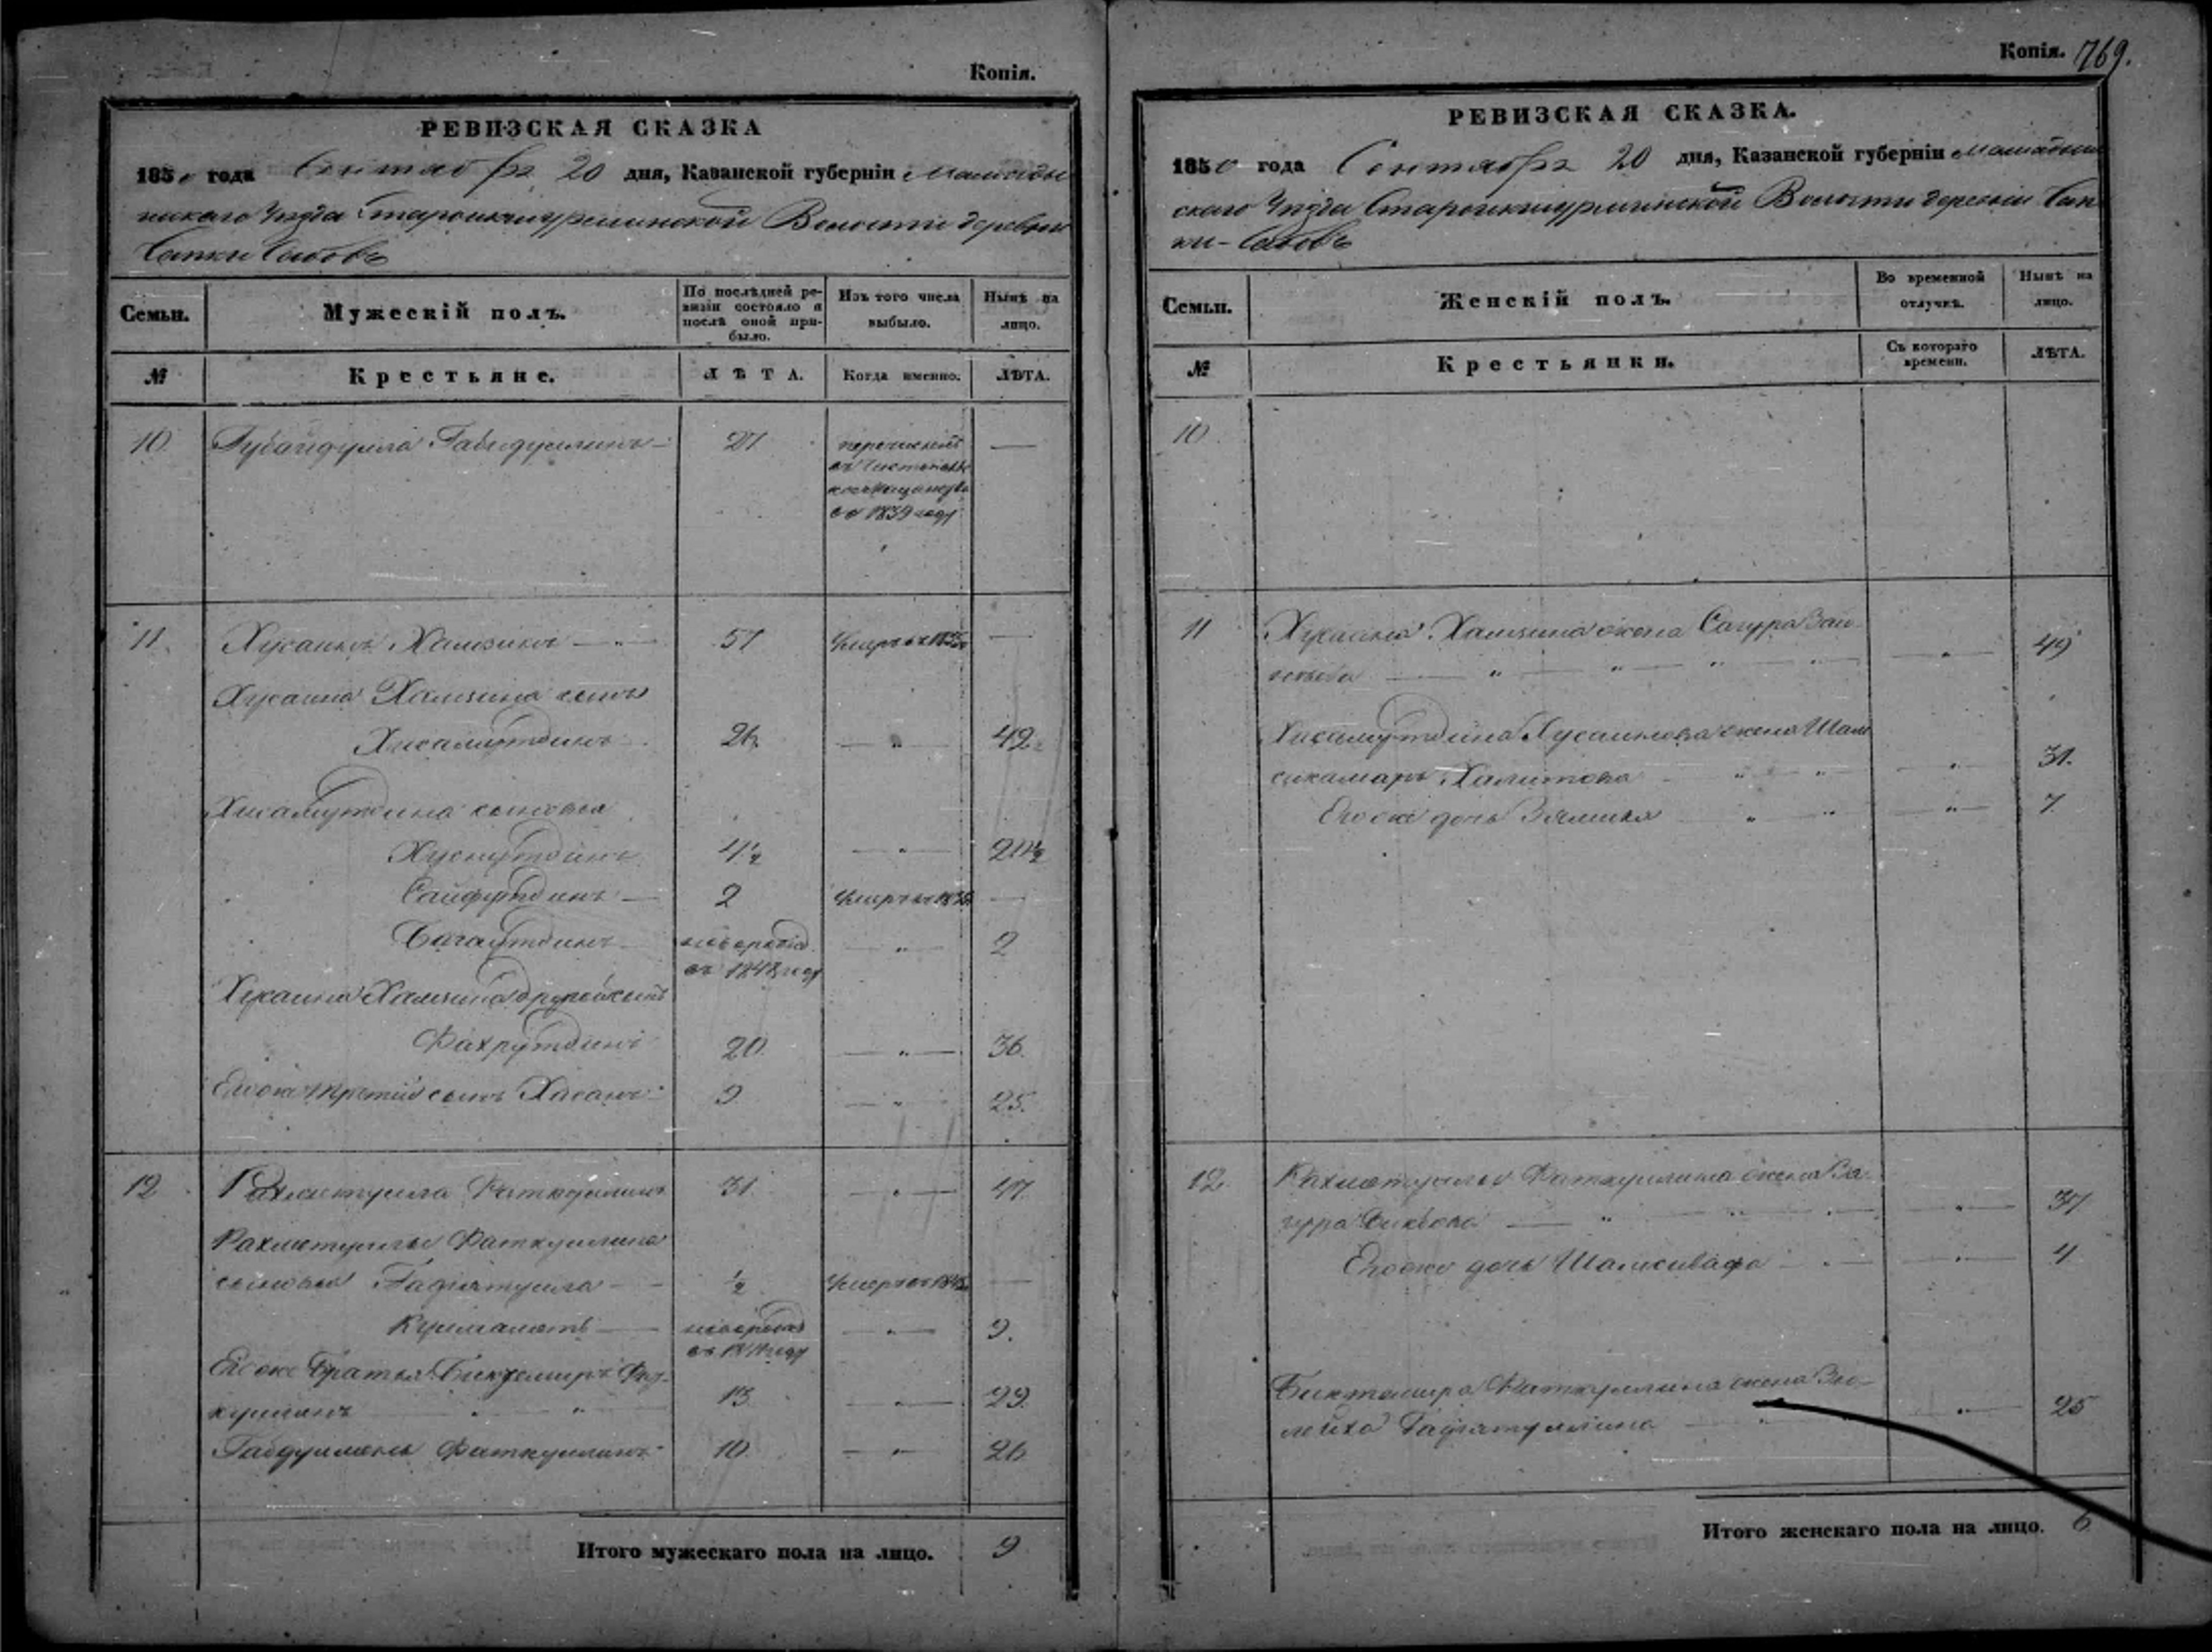 Копія.
РЕВИЗСКАЯ СКАЗКА
1850 года Сентября 20 дня, Казанской губерніи Мамадыш
скаго Уѣзда Старокишурминской Волости деревни
Сатки Сабовъ
Семьи.
Мужескій полъ.
По послѣдней ре-
визіи состояло и
послѣ оной при-
было.
Изъ того числа
выбыло.
Нынѣ на
лицо.
№
Крестьяне.
ЛѢТА.
Когда именно.
ЛѢТА.
10 Губайдулла Габидуллинъ — 27 перечисленъ —
въ 1839 году
11. Хусаинъ Хамзинъ — " — 57 Умеръ въ —
Хусаина Хамзина сынъ
Хисамутдинъ 26 — " — 42
Хисамутдина сыновья
Хуснутдинъ 4½ — " — 20½
Сайфутдинъ — 2 Умеръ въ —
Багаутдинъ новорожд. — " — 2
въ 1848 году
Хусаина Хамзина другой сынъ
Фахрутдинъ 20 — " — 36.
Его же третій сынъ Хасанъ 9 — " — 25.
12 Рахматулла Фаткуллинъ 31 — " — 47
Рахматуллы Фаткуллина
сыновья Гадіятулла — ½ Умеръ въ —
Курмаметь — новорожд — " — 9.
въ 1841 году
Его же братья Биктемиръ Фат-
куллинъ — " — " — 13 — " — 29.
Габдулмянъ Фаткуллинъ 10 — " — 26
Итого мужескаго пола на лицо. 9
Копія. 769.
РЕВИЗСКАЯ СКАЗКА.
1850 года Сентября 20 дня, Казанской губерніи Мамадыш
скаго Уѣзда Старокишурминской Волости деревни Сат
ки-Сабовъ
Семьи.
Женскій полъ.
Во временной
отлучкѣ.
Нынѣ на
лицо.
№
Крестьянки.
Съ котораго
времени.
ЛѢТА.
10
11 Хусаина Хамзина жена Сагура
— " — 49
Хисамутдина Хусаинова жена Шам
сикамарь Халитова — " — 31.
Его же дочь Зямиля — " — 7
12. Рахматуллы Фаткуллина жена За
гура Бикѣева — " — 37
Его же дочь Шамсивафа — " — 4
Биктемира Фаткуллина жена Зю-
лейха Гадіятуллина — " — 25
Итого женскаго пола на лицо. 6